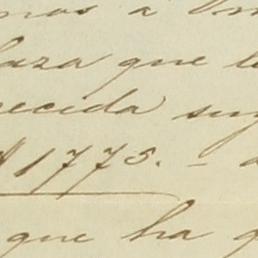 mos a
laza que l
recida su
1775. –
que ha q